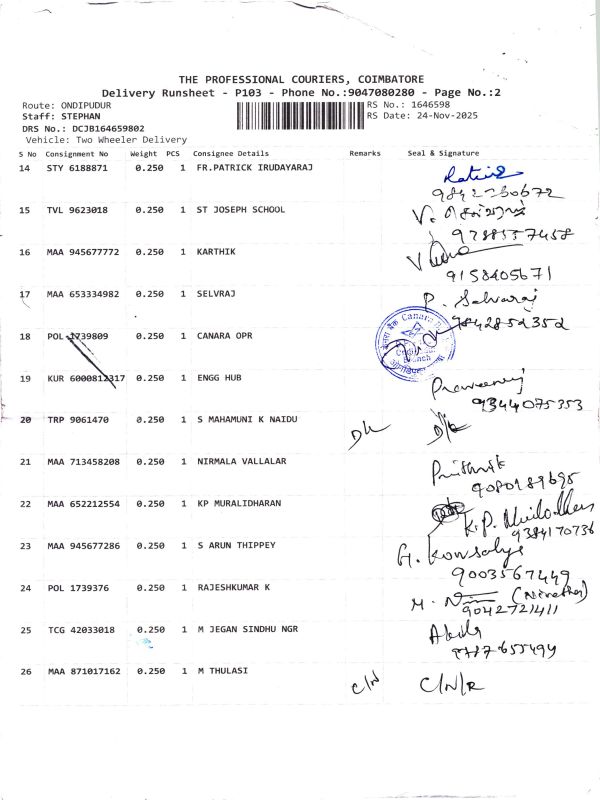 THE PROFESSIONAL COURIERS, COIMBATORE
Delivery Runsheet - P103 - Phone No.:9047080280 - Page No.:2
Route: ONDIPUDUR
RS No.: 1646598
Staff: STEPHAN
RS Date: 24-Nov-2025
DRS No.: DCJB164659802
Vehicle: Two Wheeler Delivery
S No Consignment No Weight PCS Consignee Details Remarks Seal & Signature
14 STY 6188871 0.250 1 FR.PATRICK IRUDAYARAJ
15 TVL 9623018 0.250 1 ST JOSEPH SCHOOL
16 MAA 945677772 0.250 1 KARTHIK
9158405671
17 MAA 653334982 0.250 1 SELVRAJ P. Selvaraj
9842852352
18 POL 1739809 0.250 1 CANARA OPR
19 KUR 6000812317 0.250 1 ENGG HUB Praveenraj
9344075353
20 TRP 9061470 0.250 1 S MAHAMUNI K NAIDU
21 MAA 713458208 0.250 1 NIRMALA VALLALAR
9080189695
22 MAA 652212554 0.250 1 KP MURALIDHARAN
9384170736
23 MAA 945677286 0.250 1 S ARUN THIPPEY G. Kowsalya
9003567449
24 POL 1739376 0.250 1 RAJESHKUMAR K
9042721411
25 TCG 42033018 0.250 1 M JEGAN SINDHU NGR
26 MAA 871017162 0.250 1 M THULASI C/N C/N/R